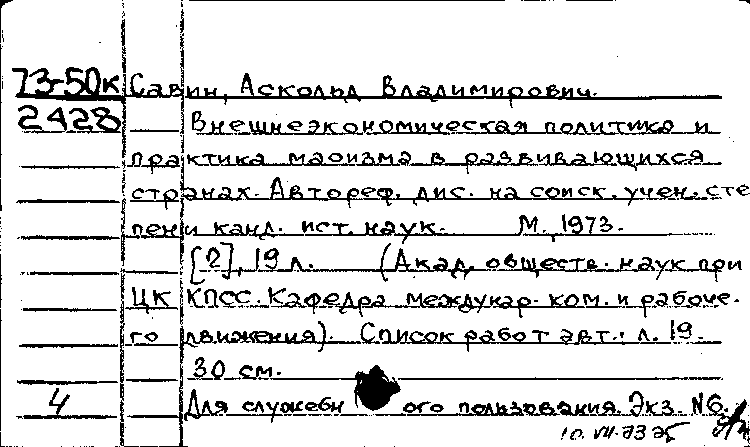 73-50к Савин, Аскольд Владимирович.
2428 Внешнеэкономическая политика и
практика маоизма в развивающихся
странах. Автореф. дис. на соиск. учен. сте
пени канд. ист. наук. М., 1973.
[2], 19 л. (Акад. обществ. наук при
ЦК КПСС. Кафедра междунар. ком. и рабоче-
го движения). Список работ авт.: л. 19.
30 см.
4 Для служебн ого пользования. Экз. №6.